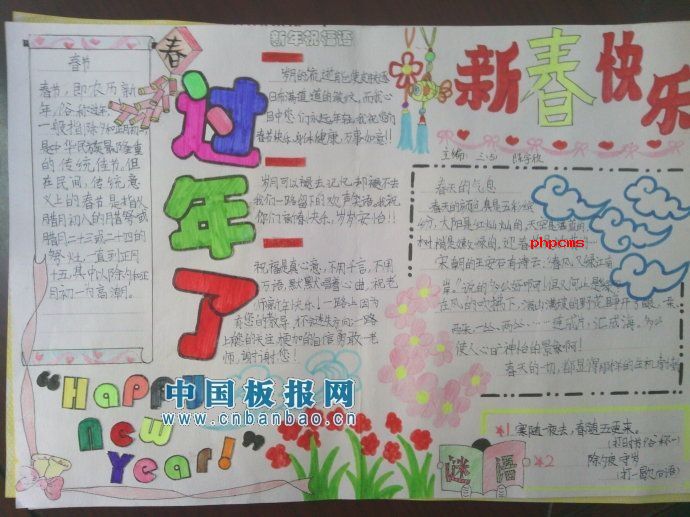 春
春节
春节,即农历新
年,俗称过年,
一般指除夕和正月初一。
是中华民族最隆重
的传统佳节。但
在民间,传统意
义上的春节是指从
腊月初八的腊祭或
腊月二十三或二十四的
祭灶,一直到正月
十五,其中以除夕和正
月初一为高潮。
过年了
新年祝福语
日布满道道的
春节快乐!身体健康,万事如意!!
岁月可以褪去记忆,却褪不去
我们一路留下的欢声笑语。祝
你们新春快乐,岁岁安怡!!
祝福是真心意,不用千言,不用
万语,默默唱着心曲,祝老
师新年快乐!一路上因为
有您的教导,才不会迷失方向,一路
上您的关注,更加的自信勇敢。老
师,谢谢您!
新春快乐
主编:三(5) 陈
春天的气息
春天的颜色真是五彩缤
纷,太阳是红灿灿的,天空是蓝蓝的
树梢是嫩绿的,迎春
宋朝的王安石有诗云:“春风又绿江南
岸。”
在风的吹拂下,满山满坡的野花都开了
两朵一丛、两丛……连成片,汇成海。
使人心旷神怡的景象啊!
春天的一切,都显得那样的生机勃勃
phpcms
“Happy
new
Year!”
中国板报网
www.cnbanbao.cn
谜语
*1. 寒随一夜去,春逐五更来。
(打
*2 除夕夜守岁
(打一歌